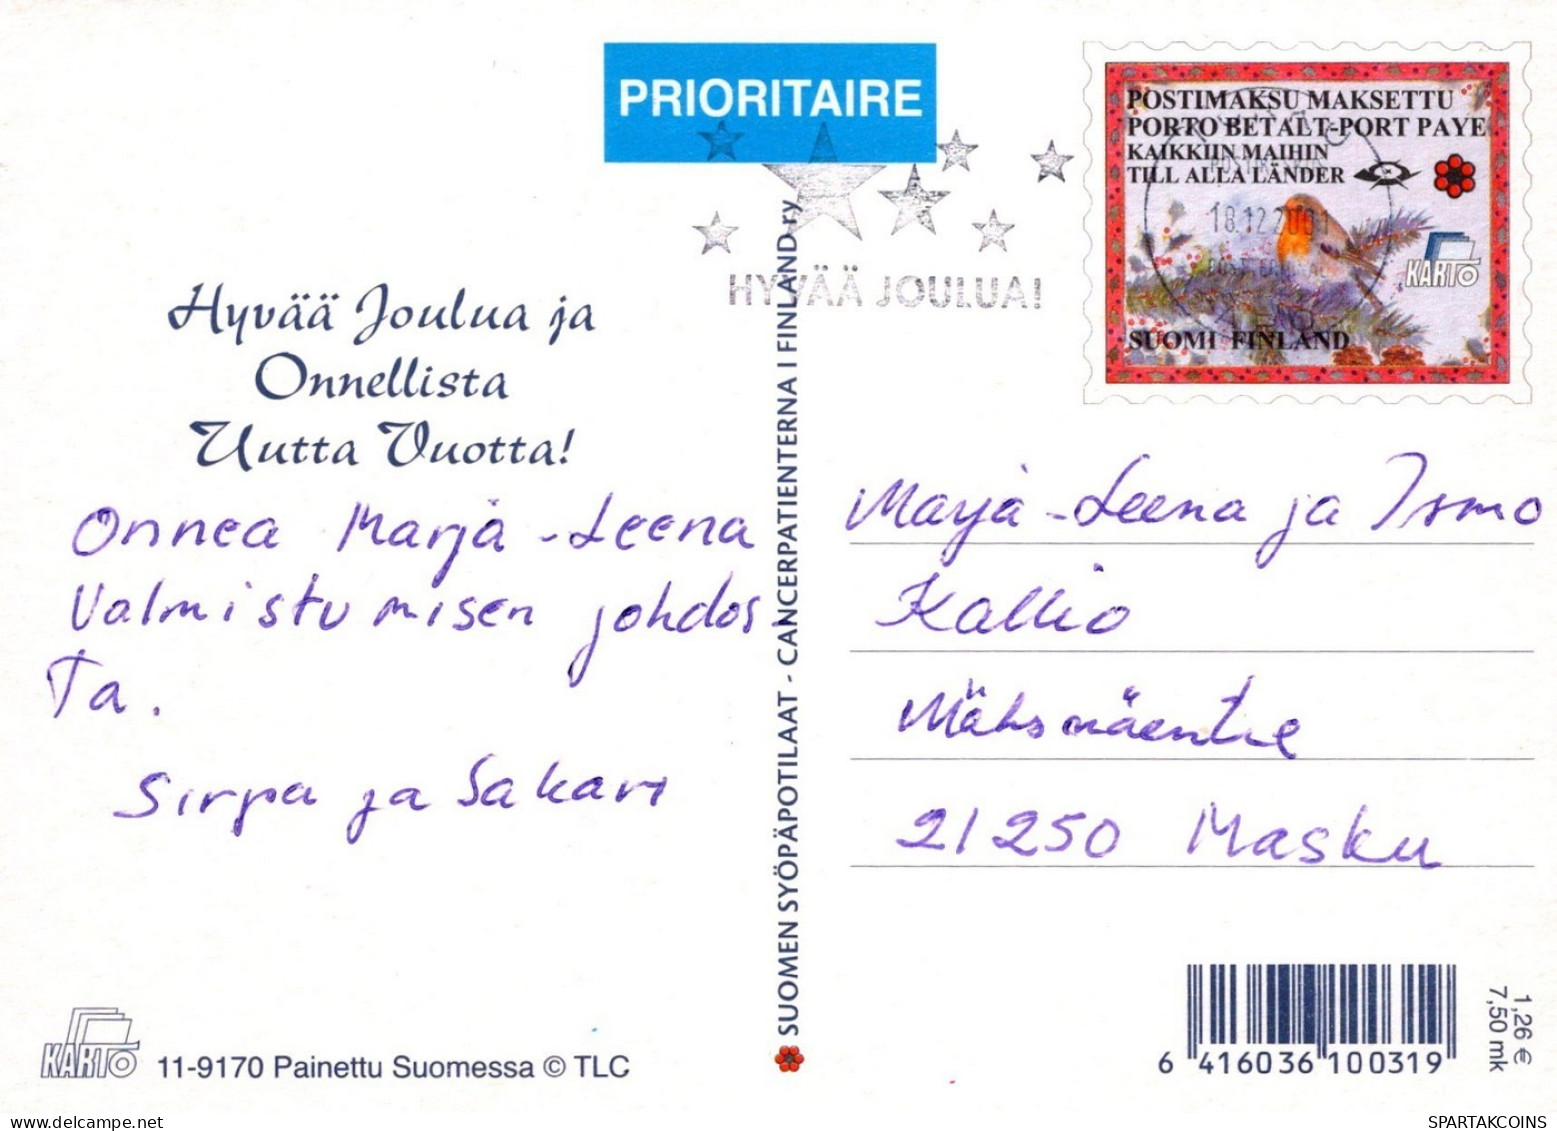 PRIORITAIRE
POSTIMAKSU MAKSETTU
PORTO BETALT-PORT PAYE
KAIKKIIN MAIHIN
TILL ALLA LÄNDER
18.12.2001
KARTO
SUOMI FINLAND
HYVÄÄ JOULUA!
Hyvää Joulua ja
Onnellista
Uutta Vuotta!
Onnea Marja-Leena
Valmistumisen johdos-
Ta.
Sirpa ja Sakari
SUOMEN SYÖPÄPOTILAAT - CANCERPATIENTERNA I FINLAND ry
Marja-Leena ja Ismo
Kallio
21250 Masku
KARTO 11-9170 Painettu Suomessa © TLC
6 416036 100319
1,26 €
7,50 mk
SPARTAKCOINS